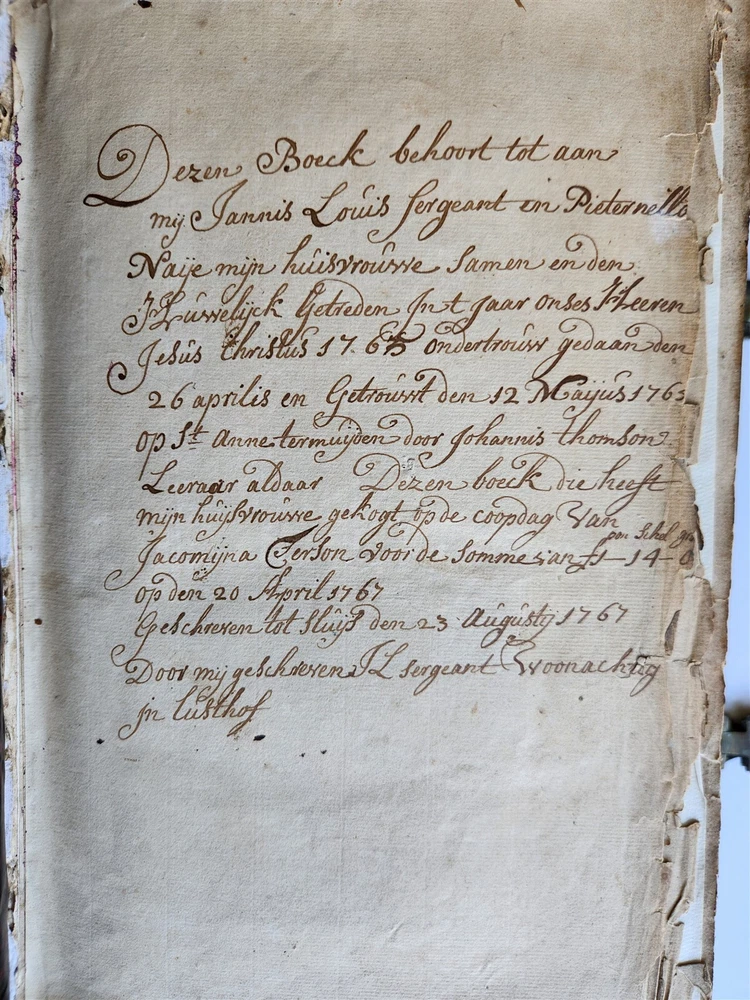 Dezen Boeck behoort tot aan
mij Jannis Louis Sergeant en Pieternella
Naije mijn huisvrouwe Samen en den
Huwelijck Getreden In t Jaar onses Heeren
Jesus Christus 1765 ondertrouw gedaan den
26 aprilis en Getrouwt den 12 Maijus 1765
op St Anne termuijden door Johannis thomson
Leeraar aldaar Dezen boeck die heeft
mijn huijsvrouwe gekogt op de coopdag Van
pon Schel gr
Jacomijna Terson voor de somme van £1-14-0
op den 20 April 1767
Geschreven tot Sluijs den 23 Augustij 1767
Door mij geschreven J L sergeant Woonachtig
in lusthof